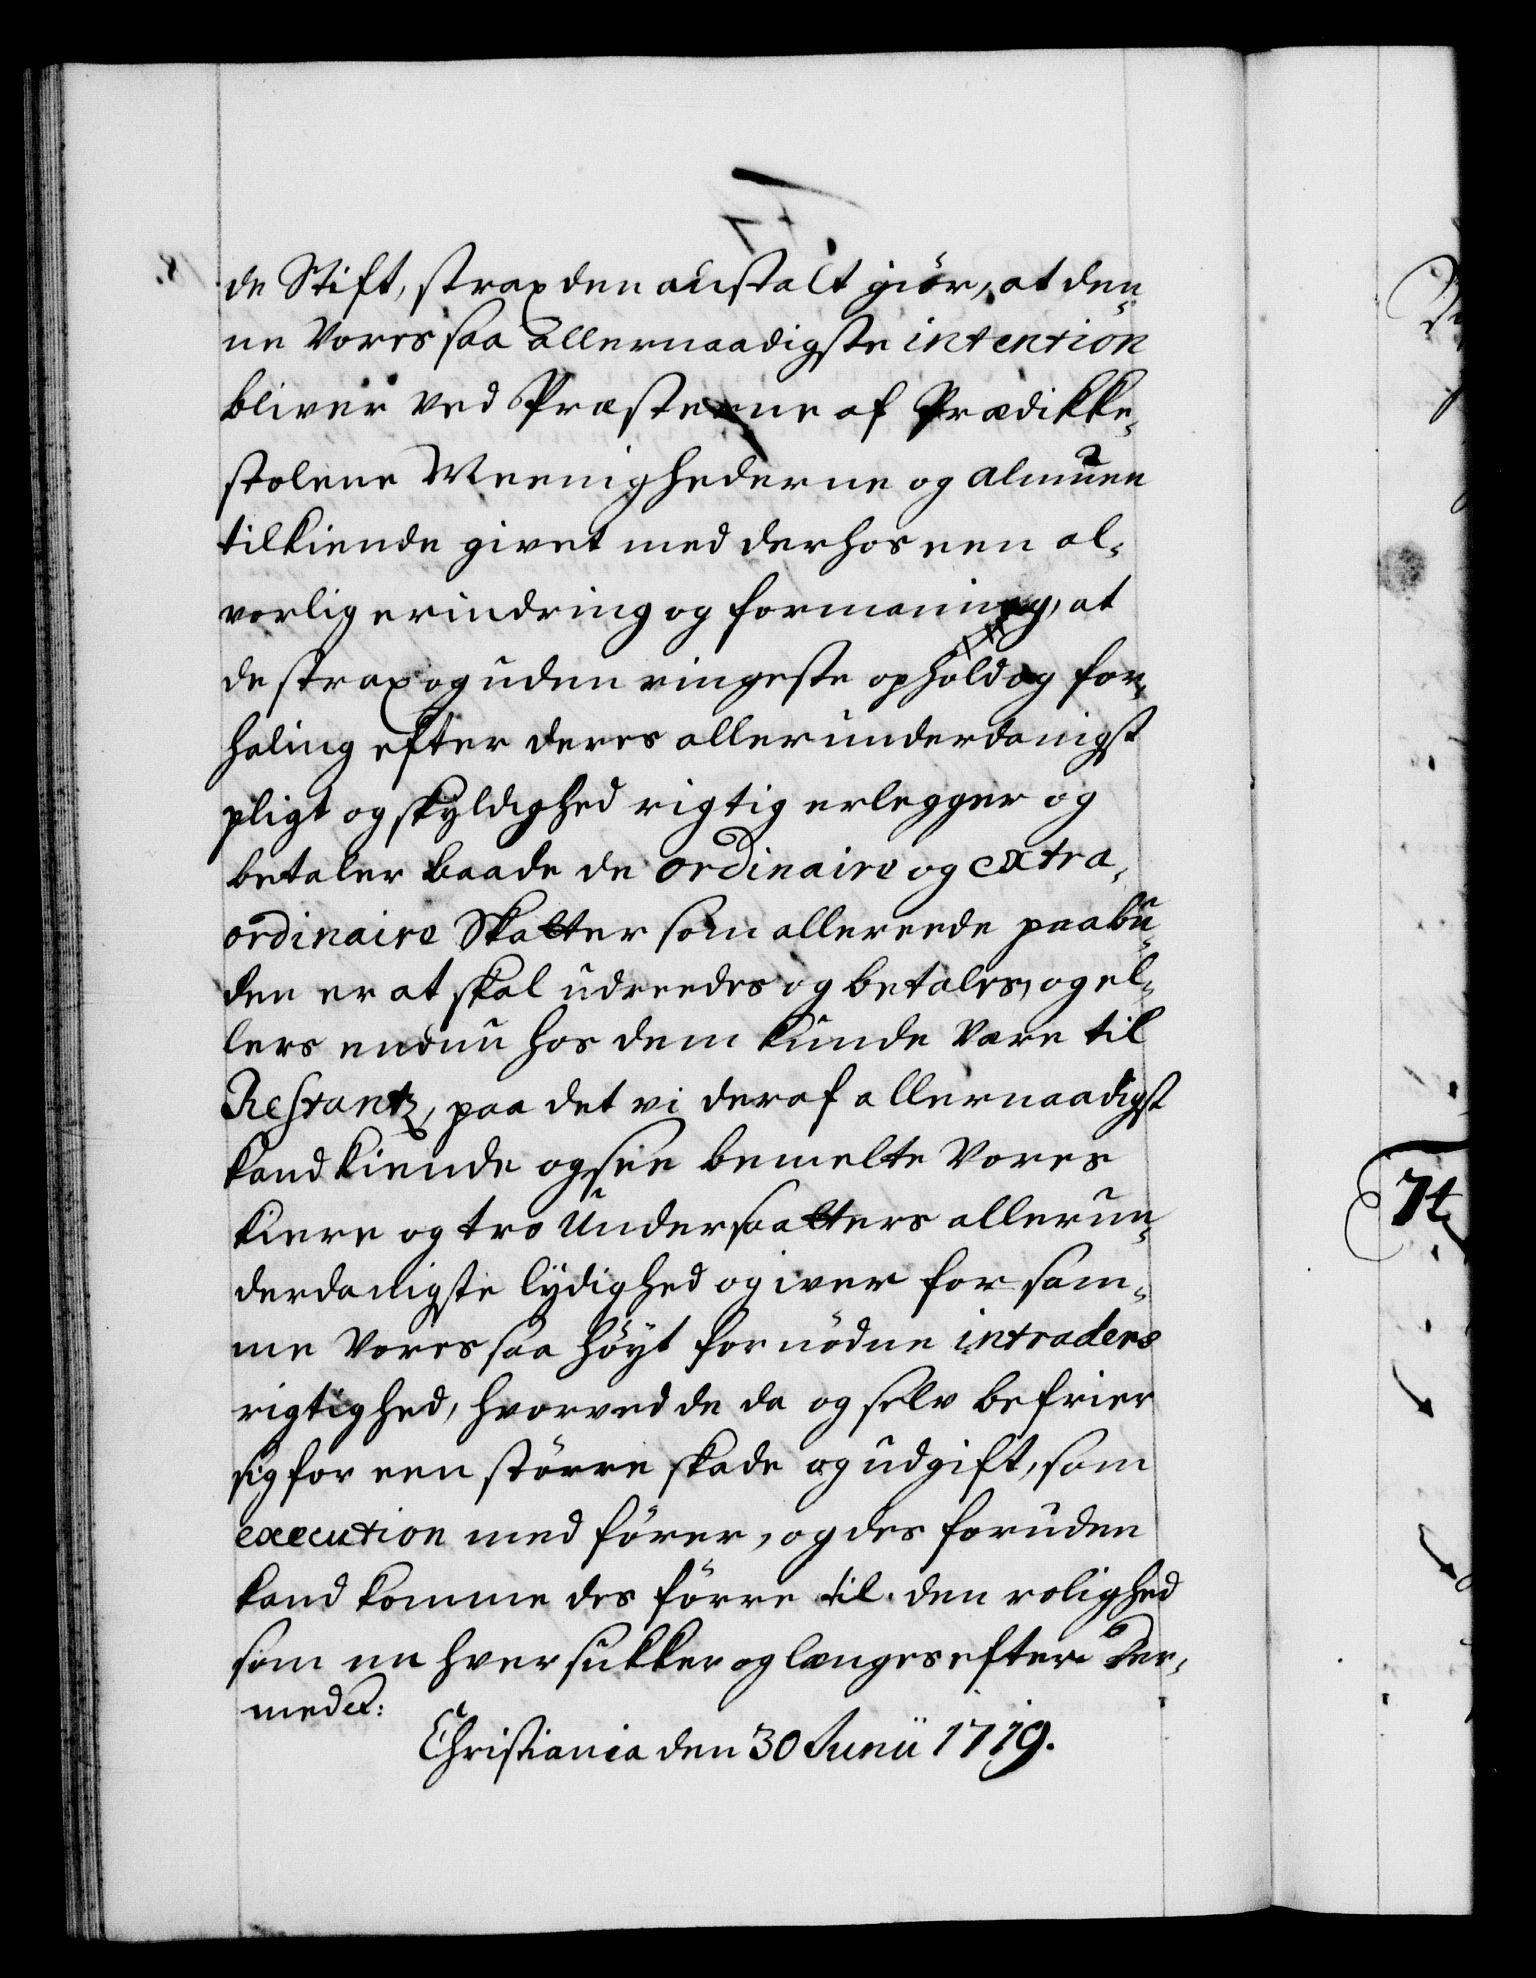 de Stift, strax den anstalt giör, at den¬
ne Vores saa allernaadigste intention
bliver ved Præsterne af Prædikke¬
stolene Meenighederne og almuen
tilkiende givet med derhos een al¬
vorlig erindring og formaning, at
de strax og uden ringeste ophold og for¬
haling efter deres allerunderdanigst
pligt og skyldighed rigtig erlegger og
betaler baade de ordinaire og extra¬
ordinaire Skatter som allereede paabu¬
den er at skal udreedes og betales, og el¬
lers endnu hos dem kunde være til
Restantz, paa det vi deraf allernaadigst
kand kiende og see bemelte Vores
kiere og tro Undersaatters allerun¬
derdanigste lydighed og iver for sam¬
me Vores saa höyt fornödne intraders
rigtighed, hvorved de da og selv befrier
sig for een större skade og udgift, som
execution med förer, og des foruden
kand komme des förre til den rolighed
som en hver sukker og længes efter. Der¬
med &:
Christiania den 30 Junii 1719.
74